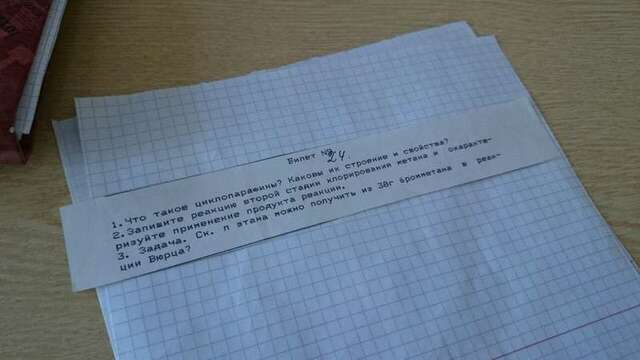 Билет № 24.
1. Что такое циклопарафины? Каковы их строение и свойства?
2. Запишите реакцию второй стадии хлорирования метана и охаракте-
ризуйте применение продукта реакции.
3. Задача. Ск. л этана можно получить из 38г бромметана в реак-
ции Вюрца?